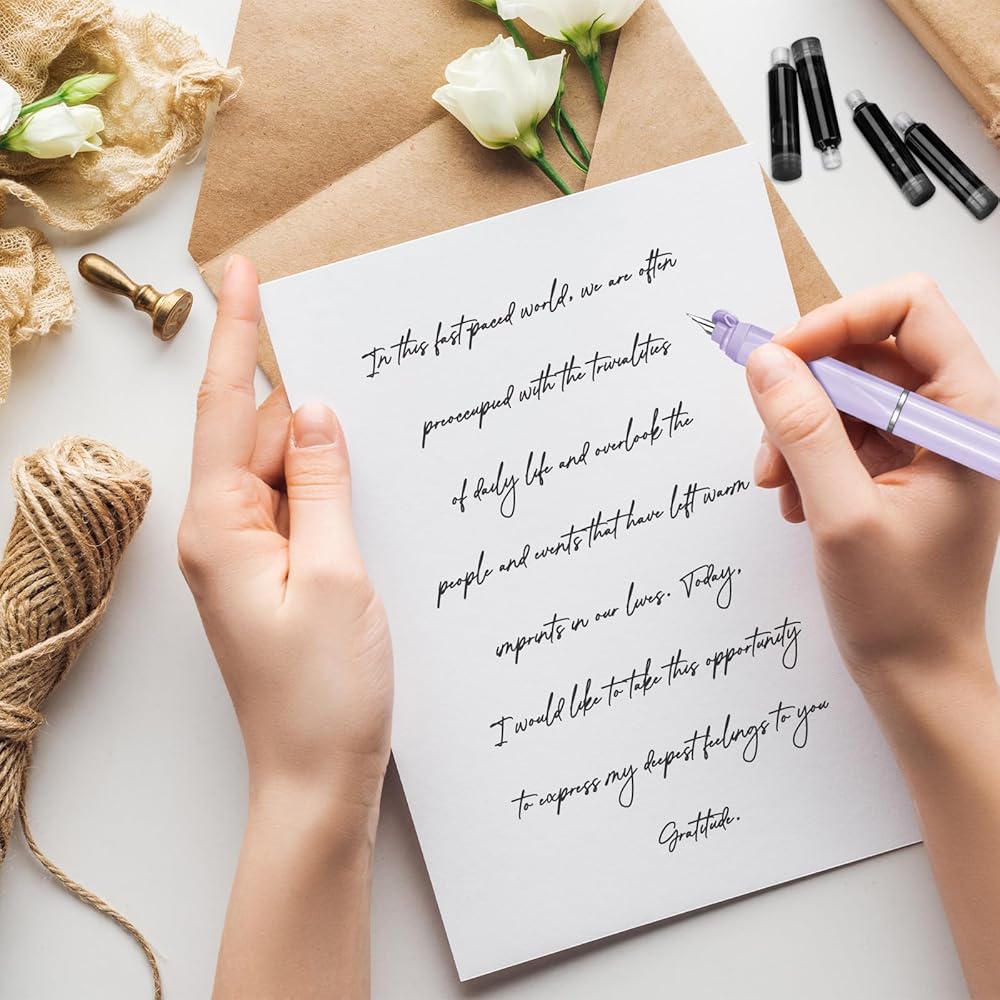 In this fast paced world, we are often
preoccupied with the trivialities
of daily life and overlook the
people and events that have left warm
imprints in our lives. Today,
I would like to take this opportunity
to express my deepest feelings to you
Gratitude.